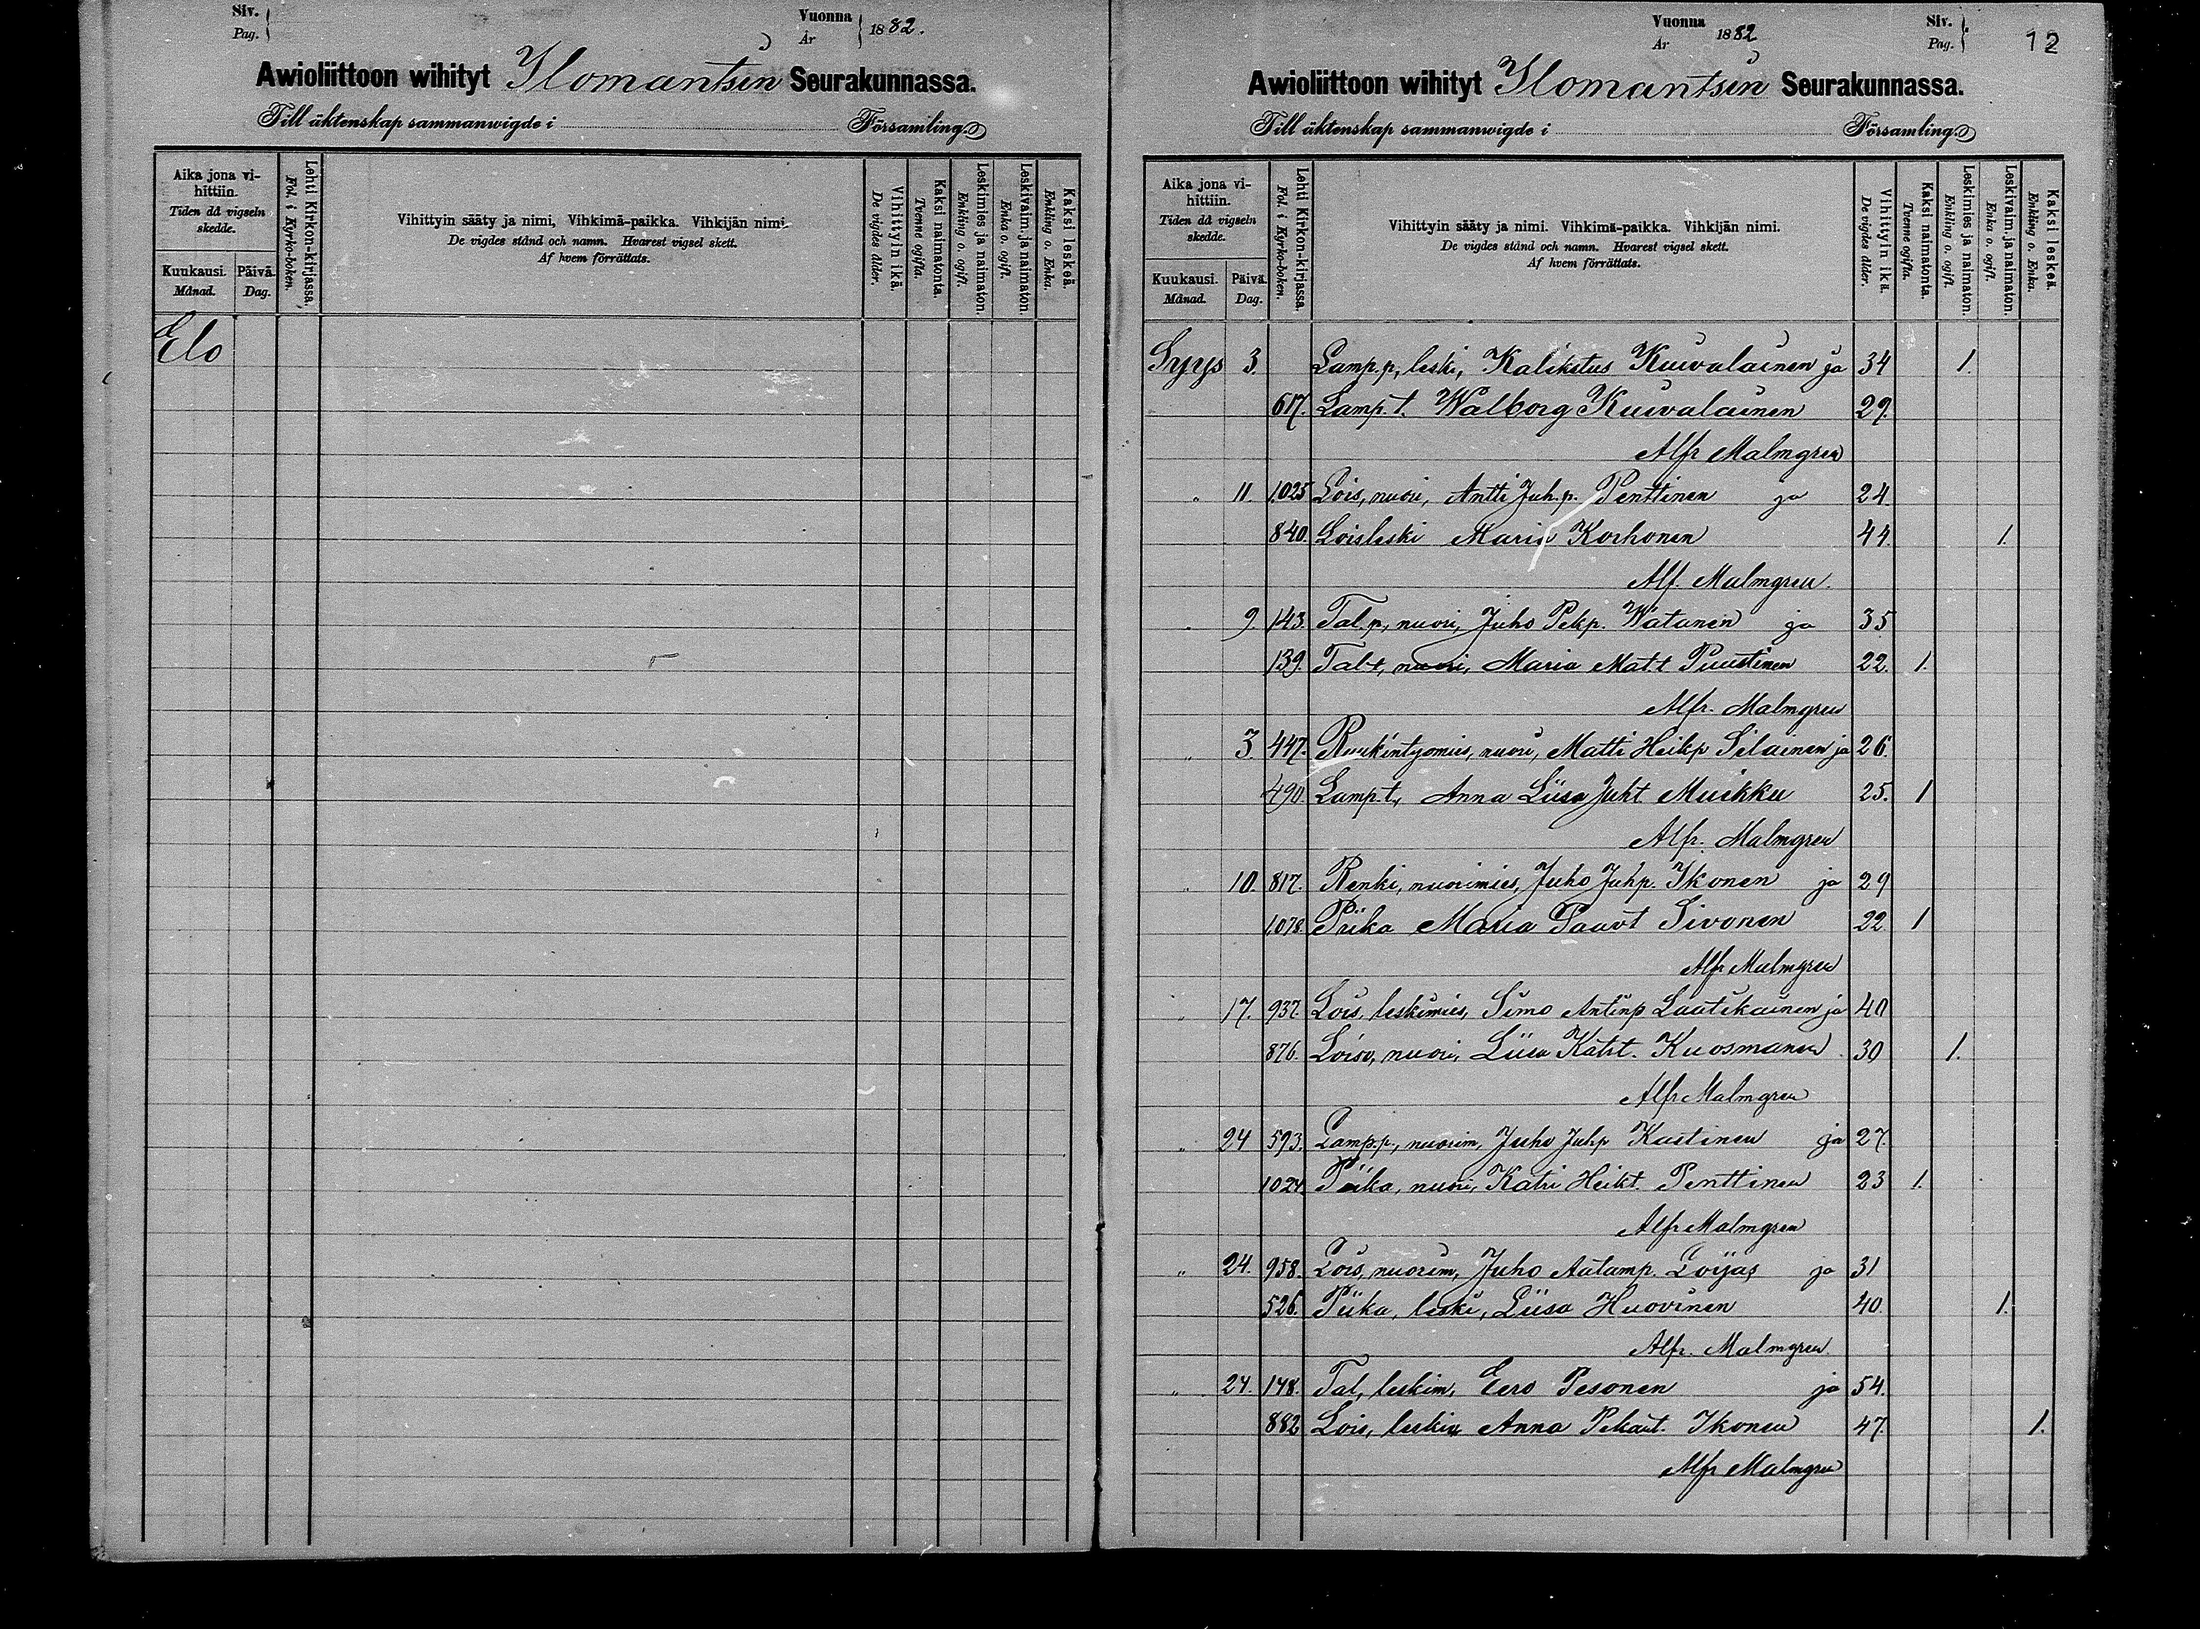 Siv.
Pag.
Vuonna
År
1882.
Awioliittoon wihityt Ilomantsin Seurakunnassa.
Till äktenskap sammanwigde i Församling.
Aika jona vihittiin.
Tiden då vigseln skedde.
Kuukausi.
Månad.
Päivä.
Dag.
Lehti Kirkon-kirjassa.
Fol. i Kyrko-boken.
Vihittyin sääty ja nimi, Vihkimä-paikka. Vihkijän nimi.
De vigdes stånd och namn. Hvarest vigsel skett.
Af hvem förrättats.
Vihittyin ikä.
De vigdes ålder.
Kaksi naimatonta.
Tvenne ogifta.
Leskimies ja naimaton.
Enkling o. ogift.
Leskivaim. ja naimaton.
Enka o. ogift.
Kaksi leskeä.
Enkling o. Enka.
Elo
Vuonna
År
1882
Siv.
Pag.
12
Awioliittoon wihityt Ilomantsin Seurakunnassa.
Till äktenskap sammanwigde i Församling.
Aika jona vihittiin.
Tiden då vigseln skedde.
Kuukausi.
Månad.
Päivä.
Dag.
Lehti Kirkon-kirjassa.
Fol. i Kyrko-boken.
Vihittyin sääty ja nimi. Vihkimä-paikka. Vihkijän nimi.
De vigdes stånd och namn. Hvarest vigsel skett.
Af hvem förrättats.
Vihittyin ikä.
De vigdes ålder.
Kaksi naimatonta.
Tvenne ogifta.
Leskimies ja naimaton.
Enkling o. ogift.
Leskivaim. ja naimaton.
Enka o. ogift.
Kaksi leskeä.
Enkling o. Enka.
Syys 3. Lamp.p, leski, Kalikstus Kuivalainen ja 34 1.
617. Lamp.t. Walborg Kuivalainen 29.
Alfr Malmgren
" 11. 1025 Lois, nuori, Antti Juh.p. Penttinen ja 24
840. Loisleski Maria Korhonen 44. 1.
Alf. Malmgren.
" 9. 143. Tal.p, nuori, Juho Pekp. Watanen ja 35
139. Tal.t, nuori, Maria Mat.t Puustinen 22. 1.
Alfr. Malmgren
" 3. 447. Ruukintyomies, nuori, Matti Heikp Silainen ja 26.
490 Lamp.t, Anna Liisa Juht Muikku 25. 1
Alfr. Malmgren
" 10. 817. Renki, nuorimies, Juho Juhp. Ikonen ja 29
1078. Piika Maria Paavt Sivonen 22 1
Alfr Malmgren
" 17. 937. Lois, leskimies, Simo Antinp Laatikainen ja 40
876. Lois, nuori, Liisa Kaht. Kuosmanen 30 1.
Alfr Malmgren
" 24 593. Lamp.p, nuorim, Juho Juhp Kastinen ja 27.
1024 Piika, nuori, Katri Heikt. Penttinen 23 1.
Alfr Malmgren
" 24. 958. Lois, nuorim, Juho Aatamp. Loijas ja 31
526. Piika, leski, Liisa Huovinen 40. 1.
Alfr. Malmgren.
" 24. 148. Tal, leskim, Eero Pesonen ja 54.
882 Lois, leski Anna Pekant. Ikonen 47. 1.
Alfr Malmgren